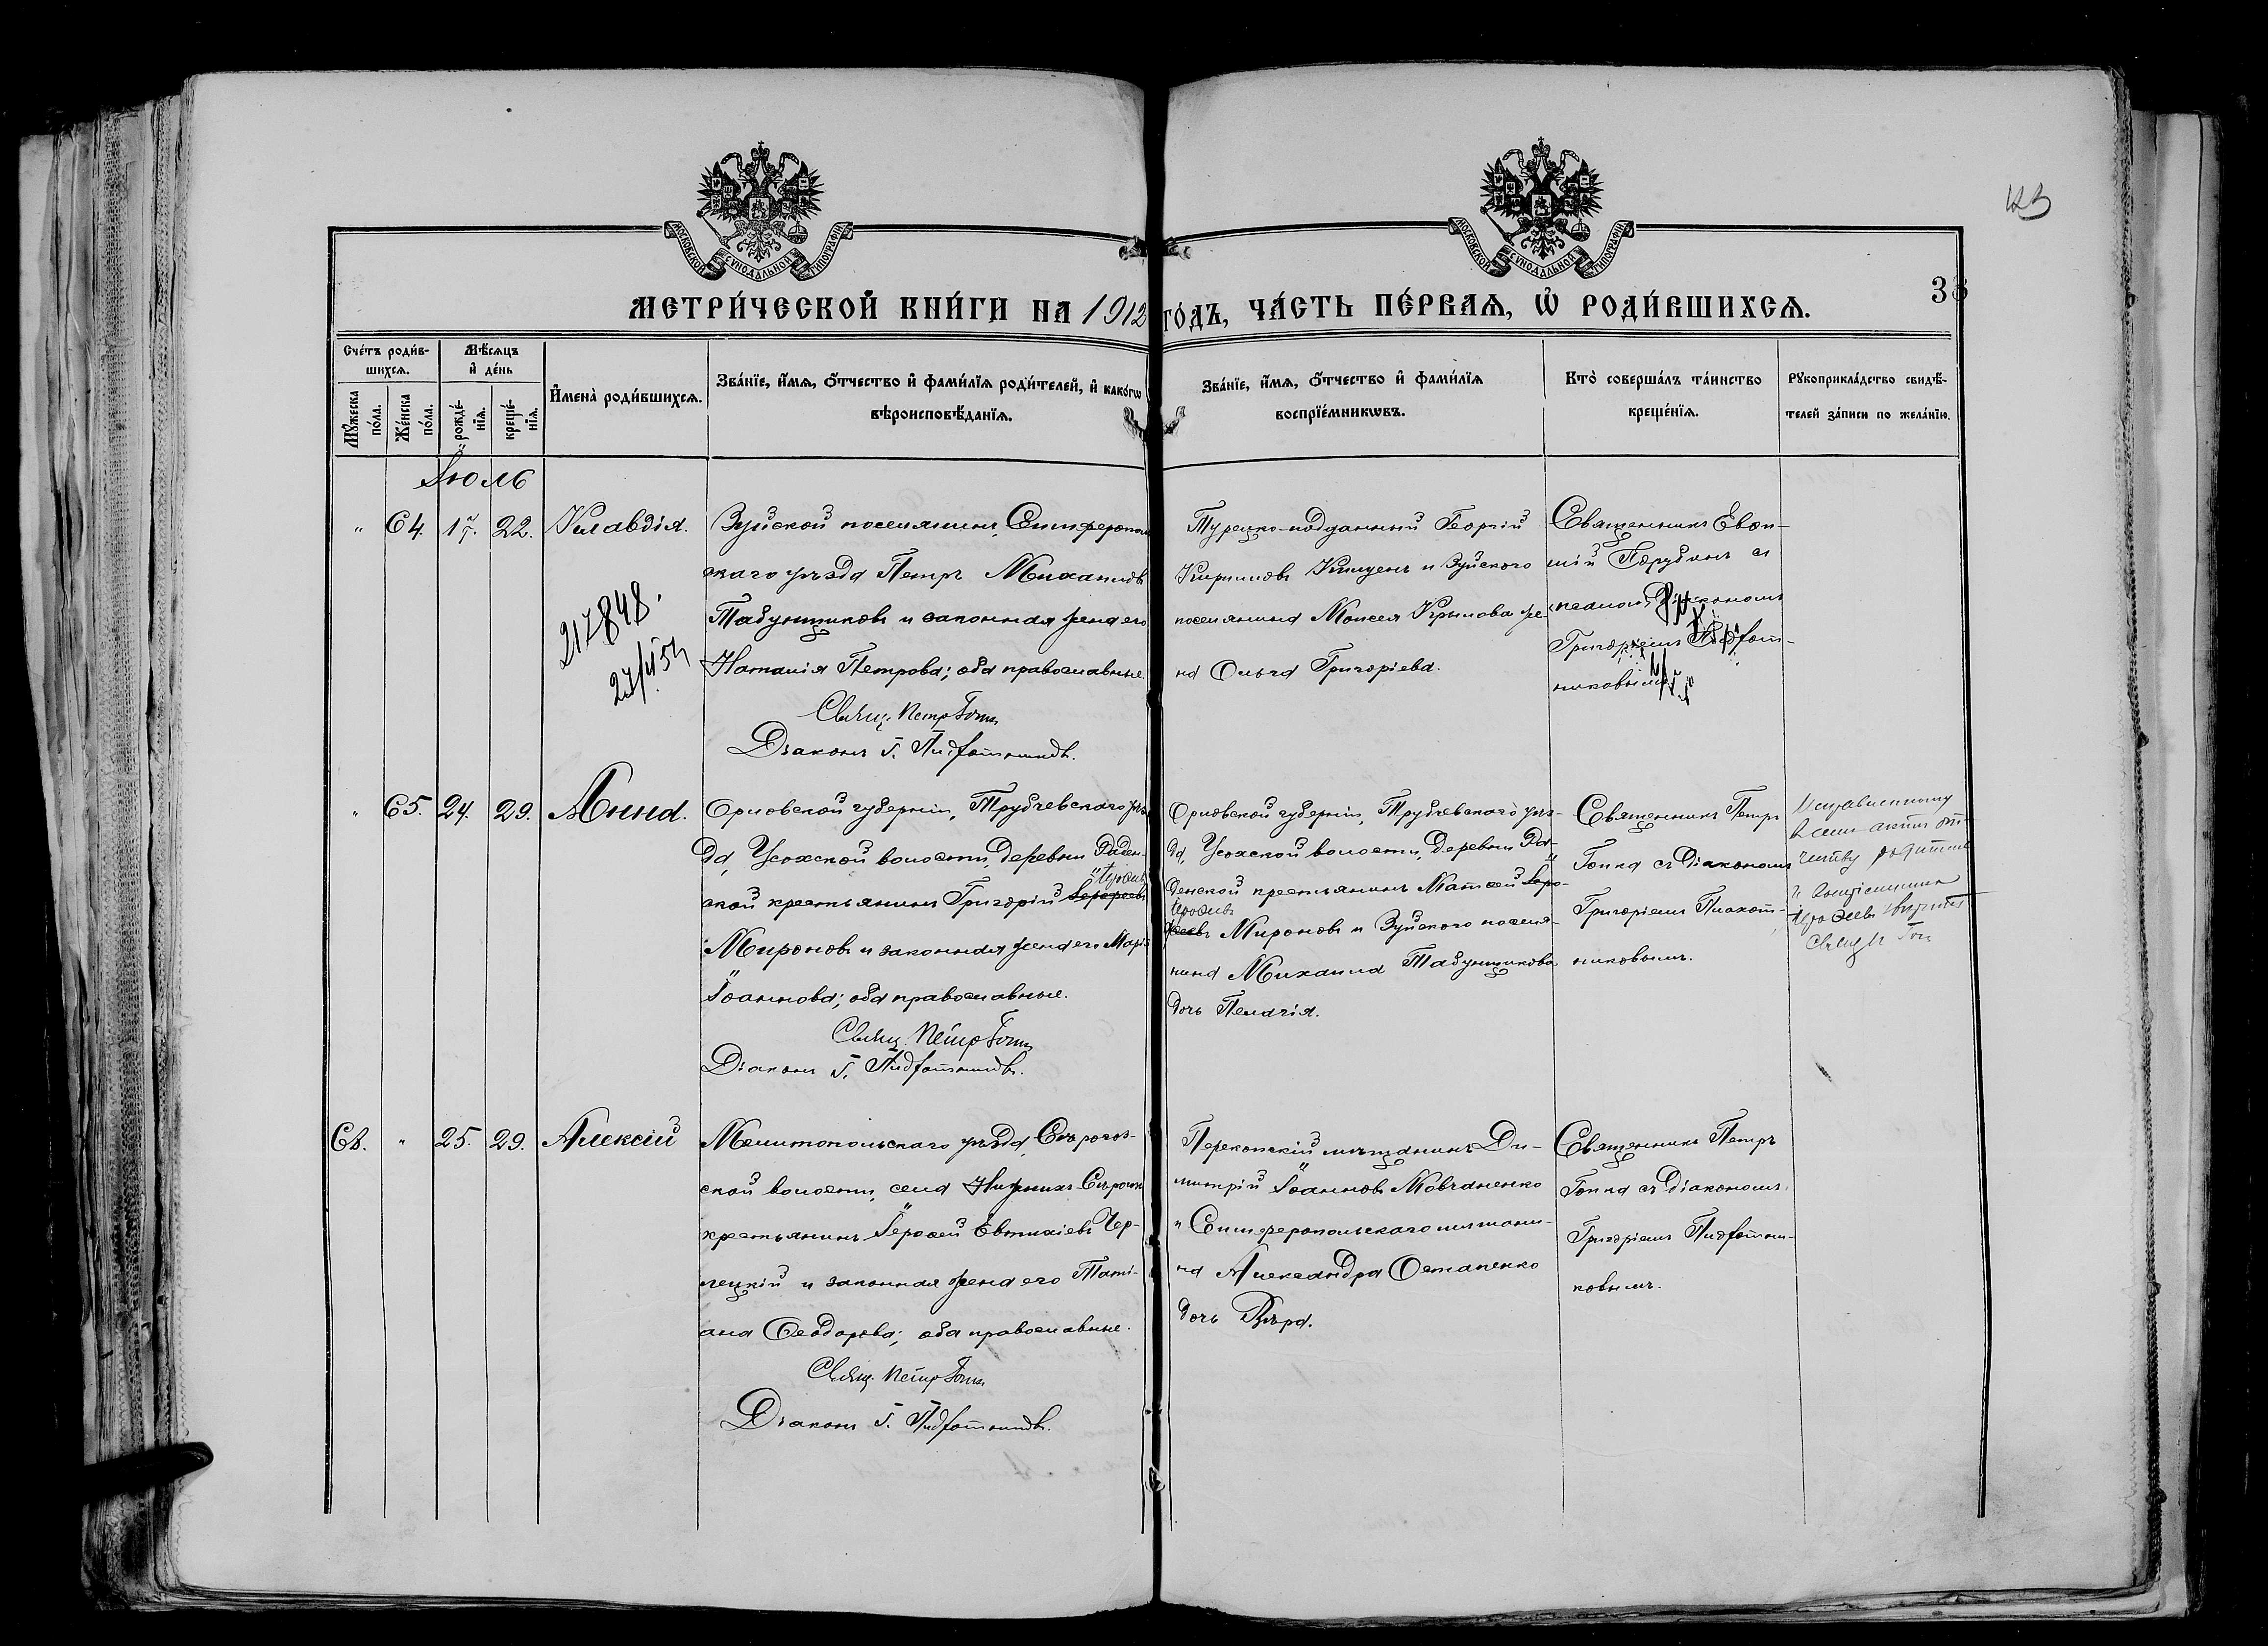 МОСКОВСКОЙ СУНОДАЛЬНОЙ ТИПОГРАФІИ
МОСКОВСКОЙ СУНОДАЛЬНОЙ ТИПОГРАФІИ
38
МЕТРИ́ЧЕСКОЙ КНИ́ГИ НА 1912 ГО́ДЪ, ЧА́СТЬ ПЕ́РВАѦ, Ѿ РОДИ́ВШИХСѦ.
Сче́тъ роди́в-
шихсѧ.
Мꙋжеска по́ла.
Же́нска по́ла.
Мѣ́сѧцъ
и҆ де́нь
рожде́-
нїѧ.
креще́-
нїѧ.
И҆мена̀ роди́вшихсѧ.
Зва́нїе, и҆́мѧ, ѻ҆́тчество и҆ фами́лїѧ роди́телей, и҆ како́гѡ
вѣроисповѣ́данїѧ.
Зва́нїе, и҆́мѧ, ѻ҆́тчество и҆ фами́лїѧ
воспрїе́мникѡвъ.
Кто̀ соверша́лъ та́инство
креще́нїѧ.
Рꙋкоприкла́дство свидѣ́-
телей за́писи по жела́нїю.
Іюль
" 64. 17. 22. Клавдія.
Зуйской поселянинъ, Симферополь
скаго уѣзда Петръ Михаиловъ
Табунщиковъ и законная жена его
Наталія Петрова; оба православные.
Свящ. Петр Гопка
Діаконъ Г.
Турецко-подданный Георгій
Кирилловъ и Зуйского
поселянина Моисея Крылова же-
на Ольга Григоріева.
Священникъ Евѳи-
мій съ
діакономъ
Григоріемъ
никовымъ
217848.
" 65. 24. 29. Анна.
Орловской губерніи, Трубчевскаго уѣз
да, Усохской волости, деревни Раден-
Іероѳеевъ
ской крестьянинъ Григорій
Мироновъ и законная жена его Марія
Іоаннова; оба православные.
Свящ. Петр Гопка
Діаконъ Г.
Орловской губерніи, Трубчевскаго уѣз-
да, Усохской волости, деревни Ра-
денской крестьянинъ Матѳей
Мироновъ и Зуйского поселя-
нина Михаила Табунщикова
дочь Пелагія.
Священникъ Петръ
Гопка съ діакономъ
Григоріемъ Плахот-
никовымъ.
68. " 25. 29. Алексій
Мелитопольскаго уѣзда, Сѣрогоз-
ской волости, села Нижнихъ-Сѣрогозъ
крестьянинъ Іероѳей Евтихіевъ Чер-
нецкій и законная жена его Таті-
ана Ѳеодорова; оба православные.
Свящ. Петр Гопка
Діаконъ Г.
Перекопскій мѣщанинъ Ди-
митрій Іоанновъ Мовчаненко
и Симферопольскаго мѣщани-
на Александра Остапенко
дочь Вѣра.
Священникъ Петръ
Гопка съ діакономъ
Григоріемъ
ковымъ.